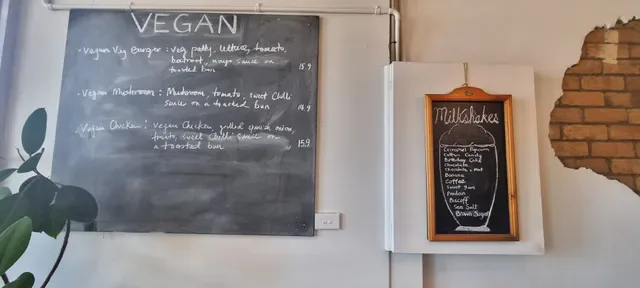 VEGAN
- Vegan Veg Burger : Veg patty, lettuce, tomato,
beetroot, mayo sauce on
toasted bun 15.9
- Vegan Mushroom : Mushroom, tomato, sweet Chilli
sauce on a toasted bun 14.9
- Vegan Chicken : Vegan Chicken, grilled spanish onion,
tomato, sweet Chilli sauce on
a toasted bun 15.9
Milkshakes
Caramel Popcorn
Cotton Candy
Birthday Cake
Chocolate
Chocolate & mint
Banana
Coffee
Sweet
Biscoff
Sea Salt
Brown Sugar